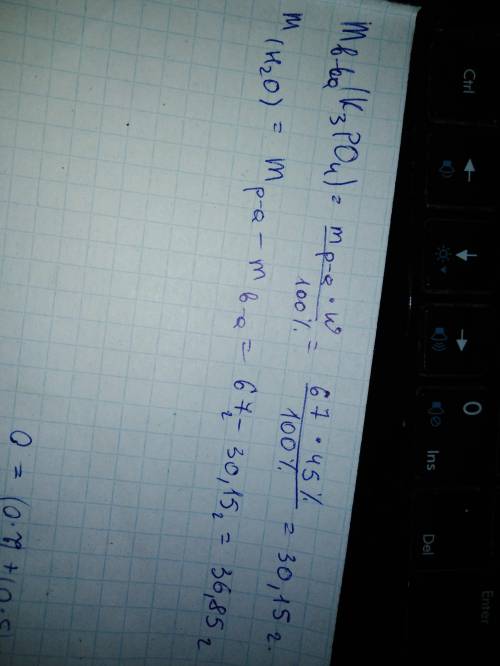 m в-ва (K₃PO₄) = m р-а · w / 100% = 67 · 45% / 100% = 30,15 г.
m (H₂O) = m р-а − m в-а = 67г − 30,15г = 36,85 г
Ctrl
0
Ins
Del
Enter